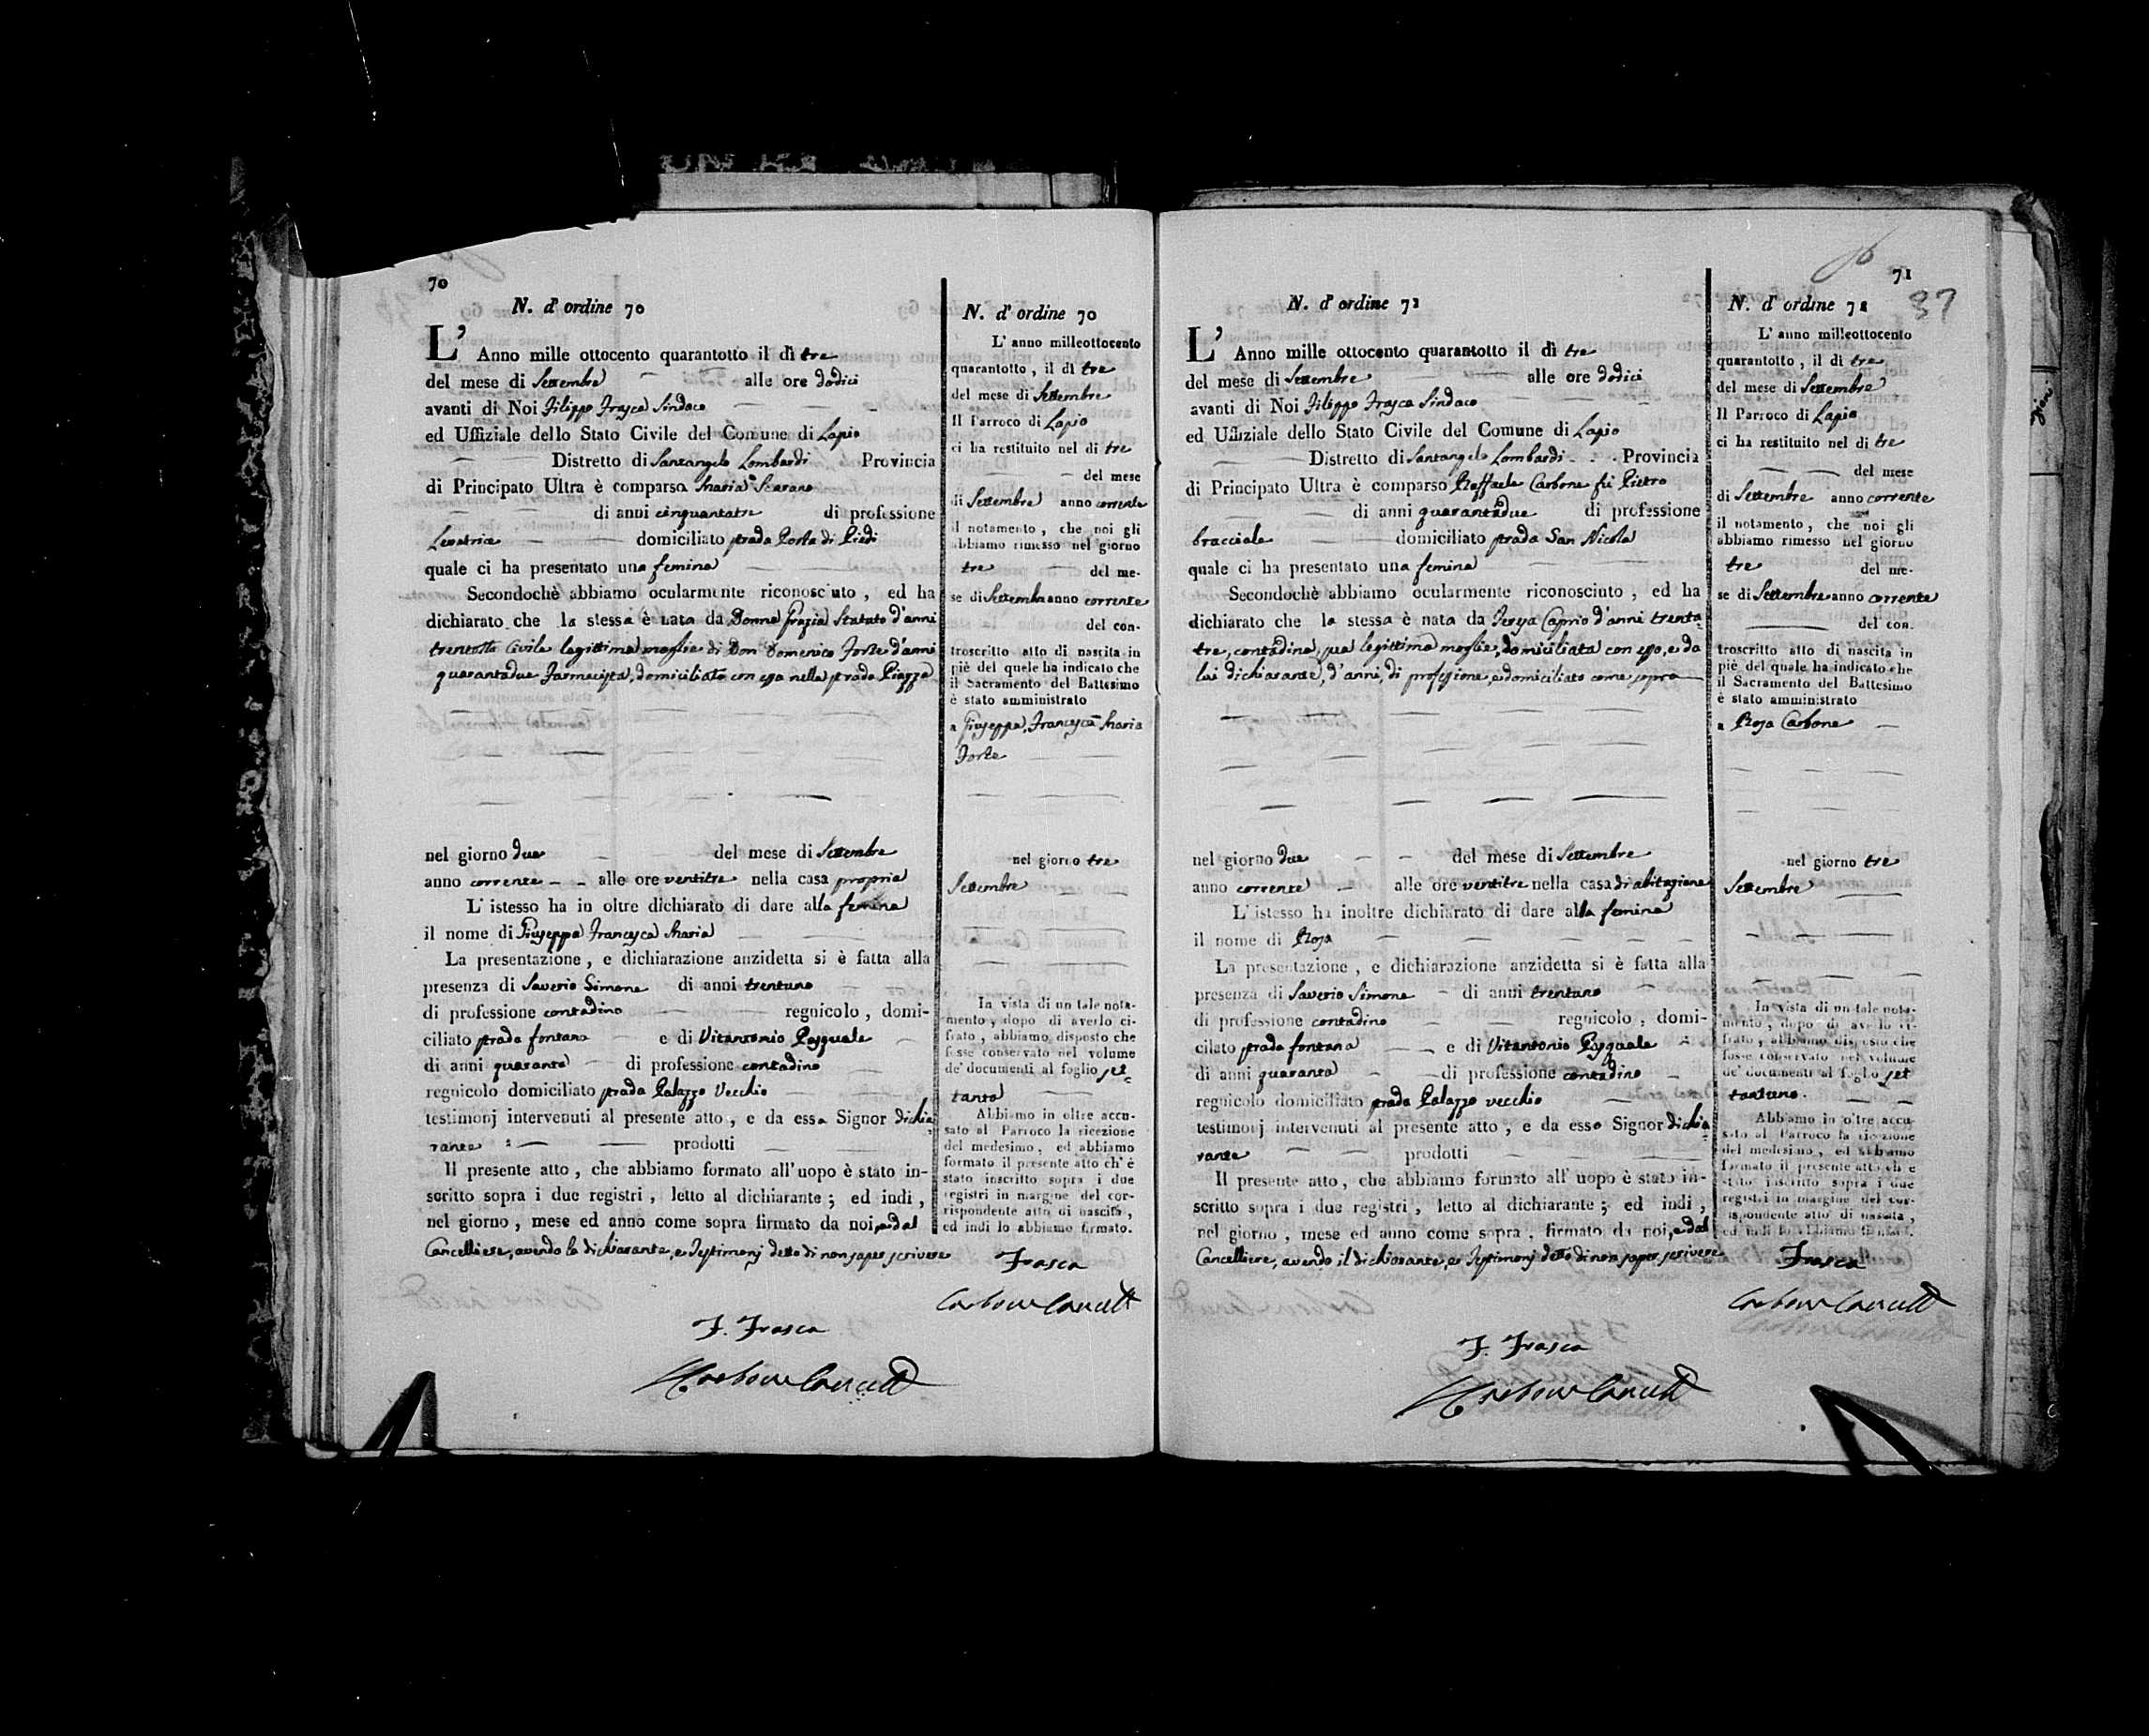 70
N. d' ordine 70
L' Anno mille ottocento quarantotto il dì tre
del mese di Settembre alle ore dodici
avanti di Noi Filippo Frasca Sindaco
ed Uffiziale dello Stato Civile del Comune di Lapio
Distretto di Santangelo Lombardi Provincia
di Principato Ultra è comparsa Maria Scarano
di anni cinquantatre di professione
Levatrice domiciliato strada Porta di Piedi
quale ci ha presentato una femina
Secondochè abbiamo ocularmente riconosciuto , ed ha
dichiarato che la stessa è nata da Donna Grazia Statuto d'anni
trentotto Civile legittima moglie di Don Domenico Forte d'anni
quarantadue Farmacista, domiciliato con essa nella strada Piazza
nel giorno due del mese di Settembre
anno corrente alle ore ventitre nella casa propria
L' istesso ha in oltre dichiarato di dare alla femina
il nome di Giuseppa Francesca Maria
La presentazione , e dichiarazione anzidetta si è fatta alla
presenza di Saverio Simone di anni trentuno
di professione contadino regnicolo , domi-
ciliato strada fontana e di Vitantonio Pasquale
di anni quaranta di professione contadino
regnicolo domiciliato strada Palazzo Vecchio
testimonj intervenuti al presente atto , e da essa Signor dichia
rante prodotti
Il presente atto , che abbiamo formato all' uopo è stato in-
scritto sopra i due registri , letto al dichiarante ; ed indi ,
nel giorno , mese ed anno come sopra firmato da noi, e dal
Cancelliere, avendo la dichiarante, e Testimonj detto di non saper scrivere
F. Frasca
Carbone Cancell
N. d' ordine 70
L' anno milleottocento
quarantotto , il dì tre
del mese di Settembre
Il Parroco di Lapio
ci ha restituito nel di tre
del mese
di Settembre anno corrente
il notamento , che noi gli
abbiamo rimesso nel giorno
tre del me-
se di Settembre anno corrente
del con-
troscritto atto di nascita in
piè del quele ha indicato che
il Sacramento del Battesimo
è stato amministrato
a Giuseppa, Francesca Maria
Forte
nel giorno tre
Settembre
In vista di un tale nota-
mento , dopo di averlo ci-
frato , abbiamo disposto che
fosse conservato nel volume
de' documenti al foglio set
tanta
Abbiamo in oltre accu-
sato al Parroco la ricezione
del medesimo , ed abbiamo
formato il presente atto ch' è
stato inscritto sopra i due
registri in margine del cor-
rispondente atto di nascita ,
ed indi lo abbiamo firmato.
Frasca
Carbone Cancell
71
37
N. d' ordine 71
L' Anno mille ottocento quarantotto il dì tre
del mese di Settembre alle ore dodici
avanti di Noi Filippo Frasca Sindaco
ed Uffiziale dello Stato Civile del Comune di Lapio
Distretto di Santangelo Lombardi Provincia
di Principato Ultra è comparso Raffaele Carbone fù Pietro
di anni quarantadue di professione
bracciale domiciliato strada San Nicola
quale ci ha presentato una femina
Secondochè abbiamo ocularmente riconosciuto , ed ha
dichiarato che la stessa è nata da Teresa Caprio d'anni trenta
tre, contadina, sua legittima moglie, domiciliata con esso, e da
lui dichiarante, d'anni, di professione, e domiciliato come sopra
nel giorno due del mese di Settembre
anno corrente alle ore ventitre nella casa di abitazione
L' istesso ha inoltre dichiarato di dare alla femina
il nome di Rosa
La presentazione , e dichiarazione anzidetta si è fatta alla
presenza di Saverio Simone di anni trentuno
di professione contadino regnicolo , domi-
cilato strada fontana e di Vitantonio Pasquale
di anni quaranta di professione contadino
regnicolo domiciliato strada Palazzo vecchio
testimonj intervenuti al presente atto , e da esso Signor dichia
rante prodotti
Il presente atto , che abbiamo formato all' uopo è stato in-
scritto sopra i due registri , letto al dichiarante ; ed indi ,
nel giorno , mese ed anno come sopra , firmato da noi, e dal
Cancelliere, avendo il dichiarante, e Testimonj detto di non saper scrivere
F. Frasca
Carbone Cancell
N. d' ordine 71
L' anno milleottocento
quarantotto , il dì tre
del mese di Settembre
Il Parroco di Lapio
ci ha restituito nel di tre
del mese
di Settembre anno corrente
il notamento , che noi gli
abbiamo rimesso nel giorno
tre del me-
se di Settembre anno corrente
del con-
troscritto atto di nascita in
piè del quale ha indicato che
il Sacramento del Battesimo
è stato amministrato
a Rosa Carbone
nel giorno tre
Settembre
In vista di un tale nota-
mento , dopo di averlo ci-
frato , abbiamo disposto che
fosse conservato nel volume
de' documenti al foglio set
tantuno.
Abbiamo in oltre accu-
sato al Parroco la ricezione
del medesimo , ed abbiamo
formato il presente atto ch' è
stato inscritto sopra i due
registri in margine del cor-
rispondente atto di nascita ,
ed indi lo abbiamo firmato.
Frasca
Carbone Cancell